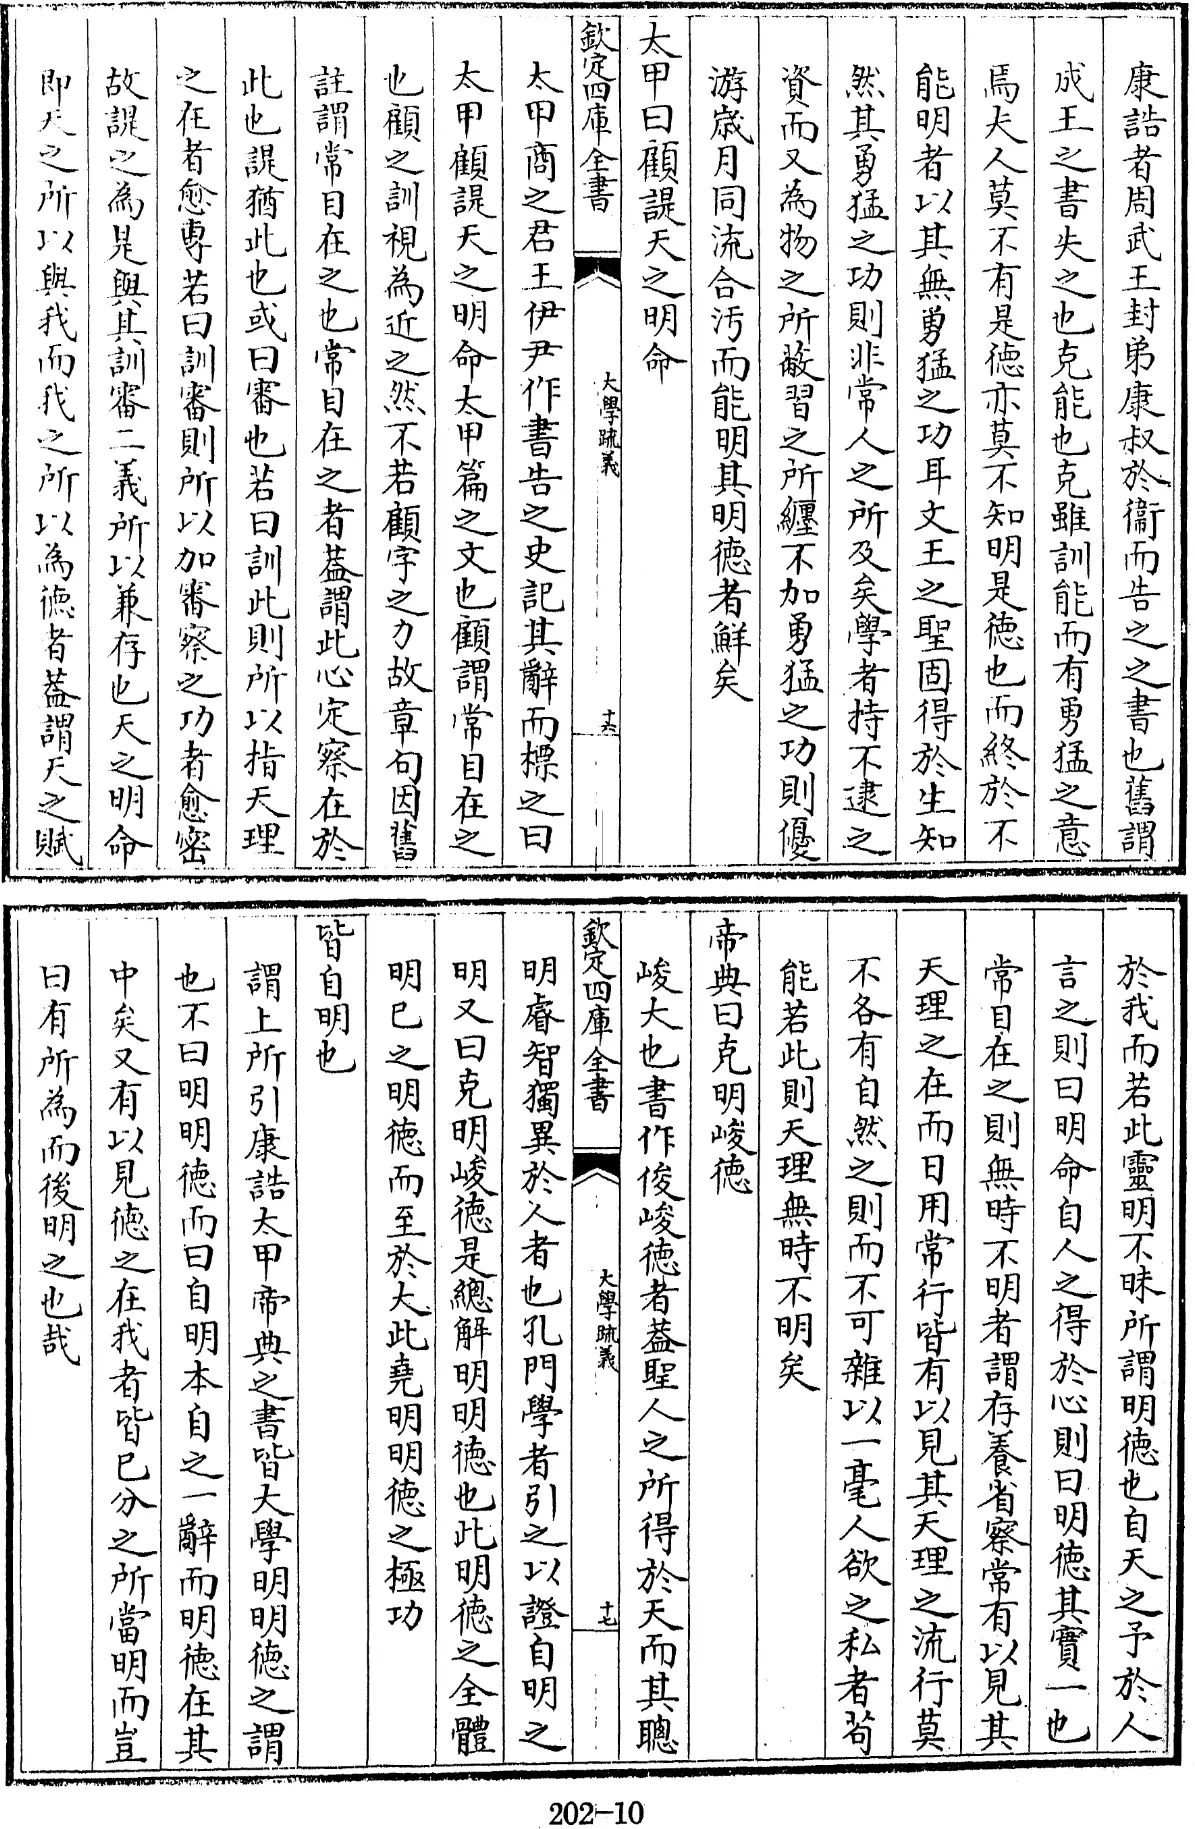 康誥者周武王封弟康叔於衞而告之之書也舊謂
成王之書失之也克能也克雖訓能而有勇猛之意
焉夫人莫不有是徳亦莫不知明是徳也而終於不
能明者以其無勇猛之功耳文王之聖固得於生知
然其勇猛之功則非常人之所及矣學者持不逮之
資而又為物之所蔽習之所纒不加勇猛之功則優
游歳月同流合汚而能明其明徳者鮮矣
太甲曰顧諟天之明命
欽定四庫全書
大學疏義
十六
太甲商之君王伊尹作書告之史記其辭而標之曰
太甲顧諟天之明命太甲篇之文也顧謂常目在之
也顧之訓視為近之然不若顧字之力故章句因舊
註謂常目在之也常目在之者葢謂此心定察在於
此也諟猶此也或曰審也若曰訓此則所以指天理
之在者愈専若曰訓審則所以加審察之功者愈密
故諟之為是與其訓審二義所以兼存也天之明命
即天之所以與我而我之所以為徳者葢謂天之賦
於我而若此靈明不昧所謂明徳也自天之予於人
言之則曰明命自人之得於心則曰明徳其實一也
常目在之則無時不明者謂存養省察常有以見其
天理之在而日用常行皆有以見其天理之流行莫
不各有自然之則而不可雜以一毫人欲之私者茍
能若此則天理無時不明矣
帝典曰克明峻徳
峻大也書作俊峻徳者葢聖人之所得於天而其聰
欽定四庫全書
大學疏義
十七
明睿智獨異於人者也孔門學者引之以證自明之
明又曰克明峻徳是總解明明徳也此明徳之全體
明已之明徳而至於大此堯明明徳之極功
皆自明也
謂上所引康誥太甲帝典之書皆大學明明徳之謂
也不曰明明徳而曰自明本自之一辭而明徳在其
中矣又有以見徳之在我者皆已分之所當明而豈
曰有所為而後明之也哉
202-10